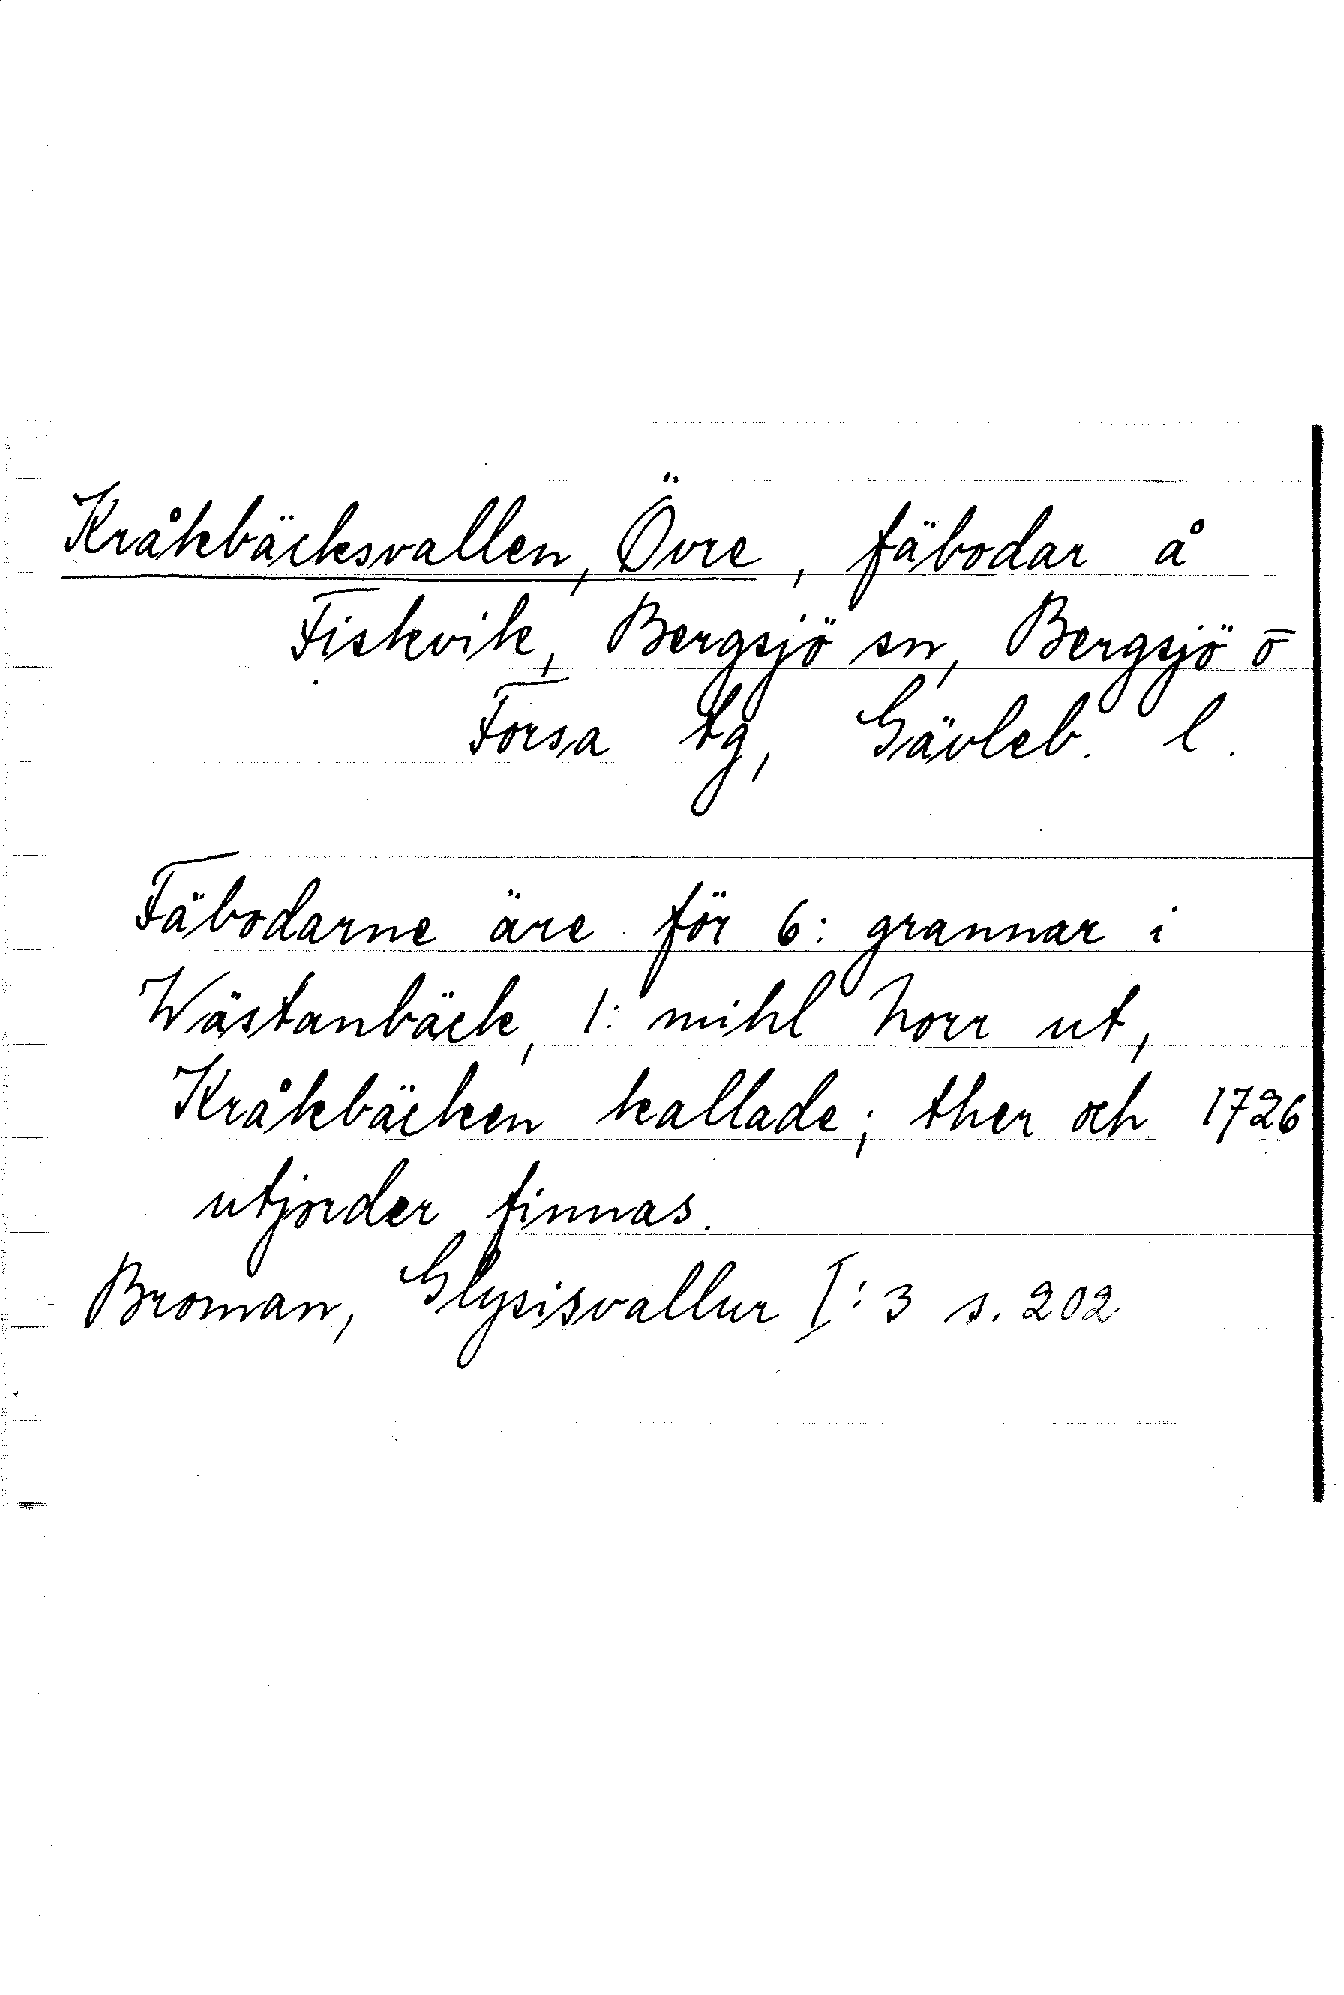 Kråkbäcksvallen, Övre, fäbodar å
Fiskvik, Bergsjö sn, Bergsjö o
Forsa tg, Gävleb. l.
Fäbodarne äre för 6: grannar i
Wästanbäck, 1: mihl Norr ut,
Kråkbäcken kallade; ther och 1726
utjorder finnas.
Broman, Glysisvallur I:3 s. 202